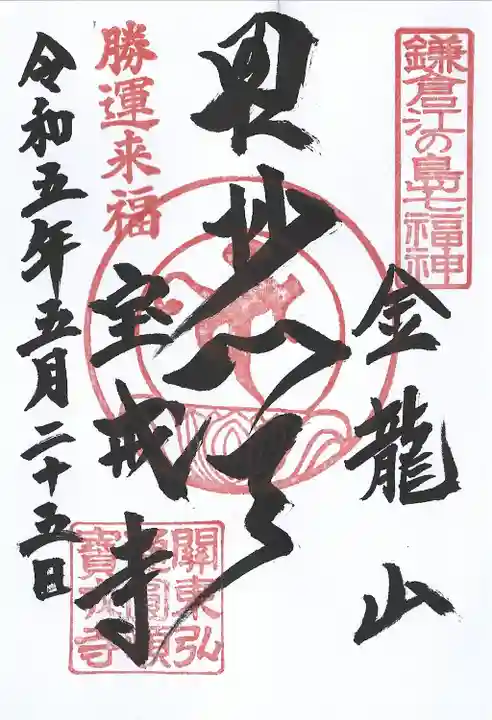 鎌倉江の島七福神
金龍山
毘沙門天
勝運来福
宝戒寺
令和五年五月二十五日
關東弘
寶戒寺